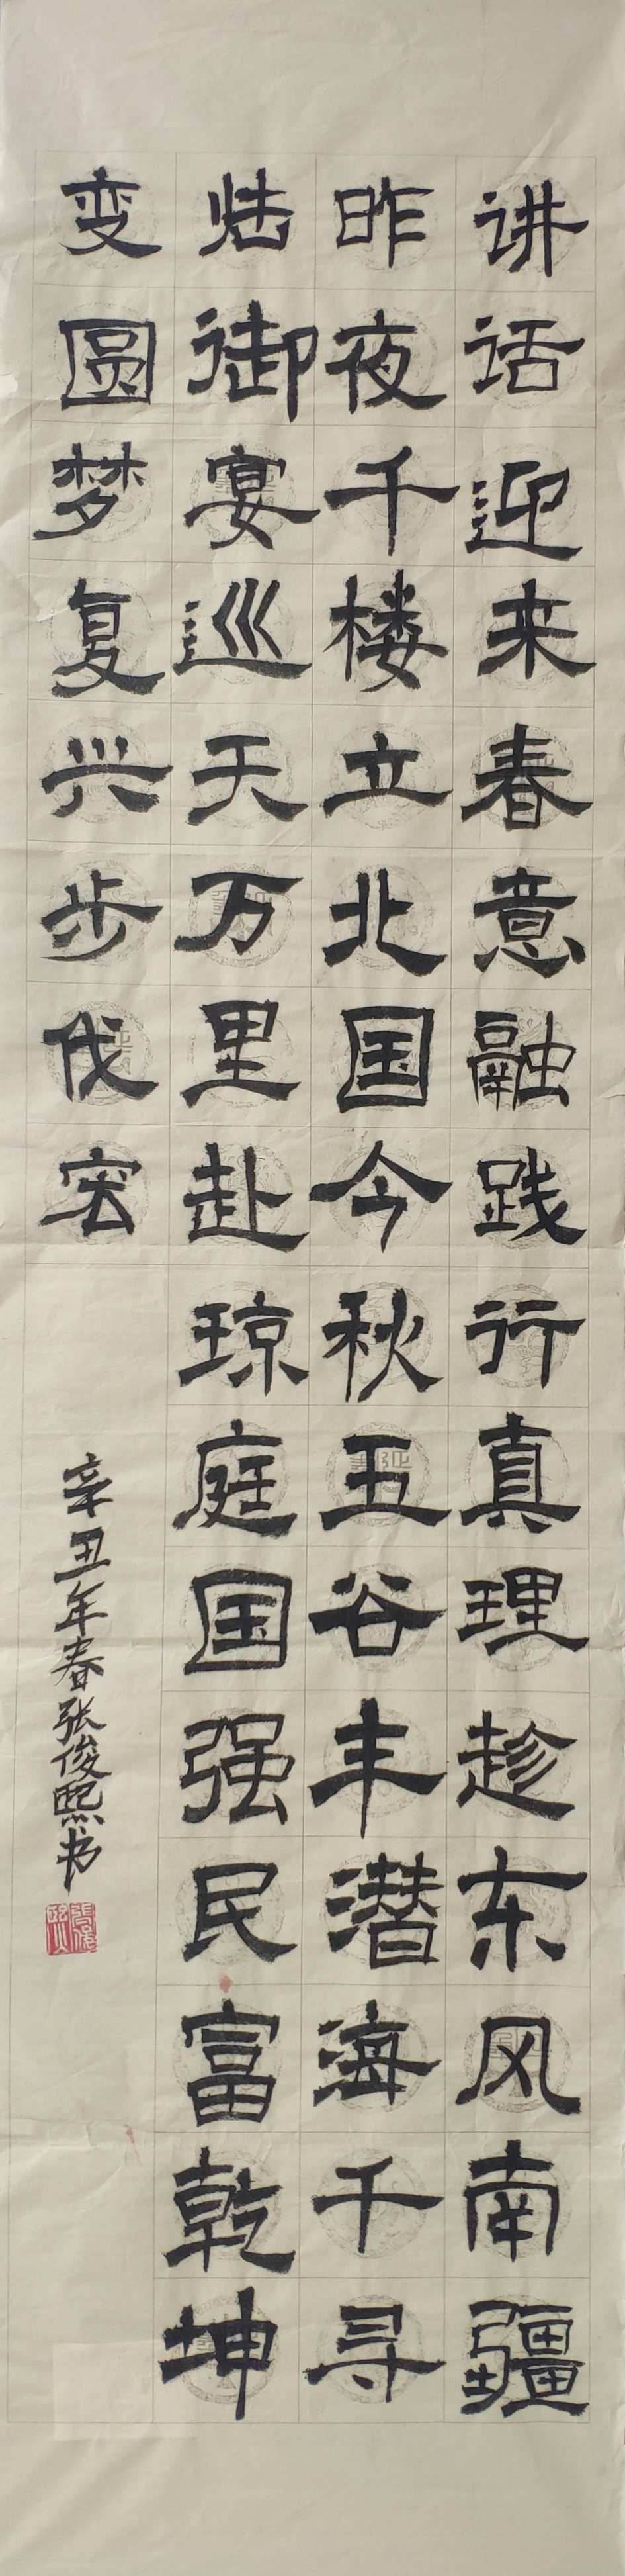 讲话迎来春意融践行真理趁东风南疆
昨夜千楼立北国今秋五谷丰潜海千寻
怯御宴巡天万里赴琼庭国强民富乾坤
变圆梦复兴步伐宏
辛丑年春张俊熙书